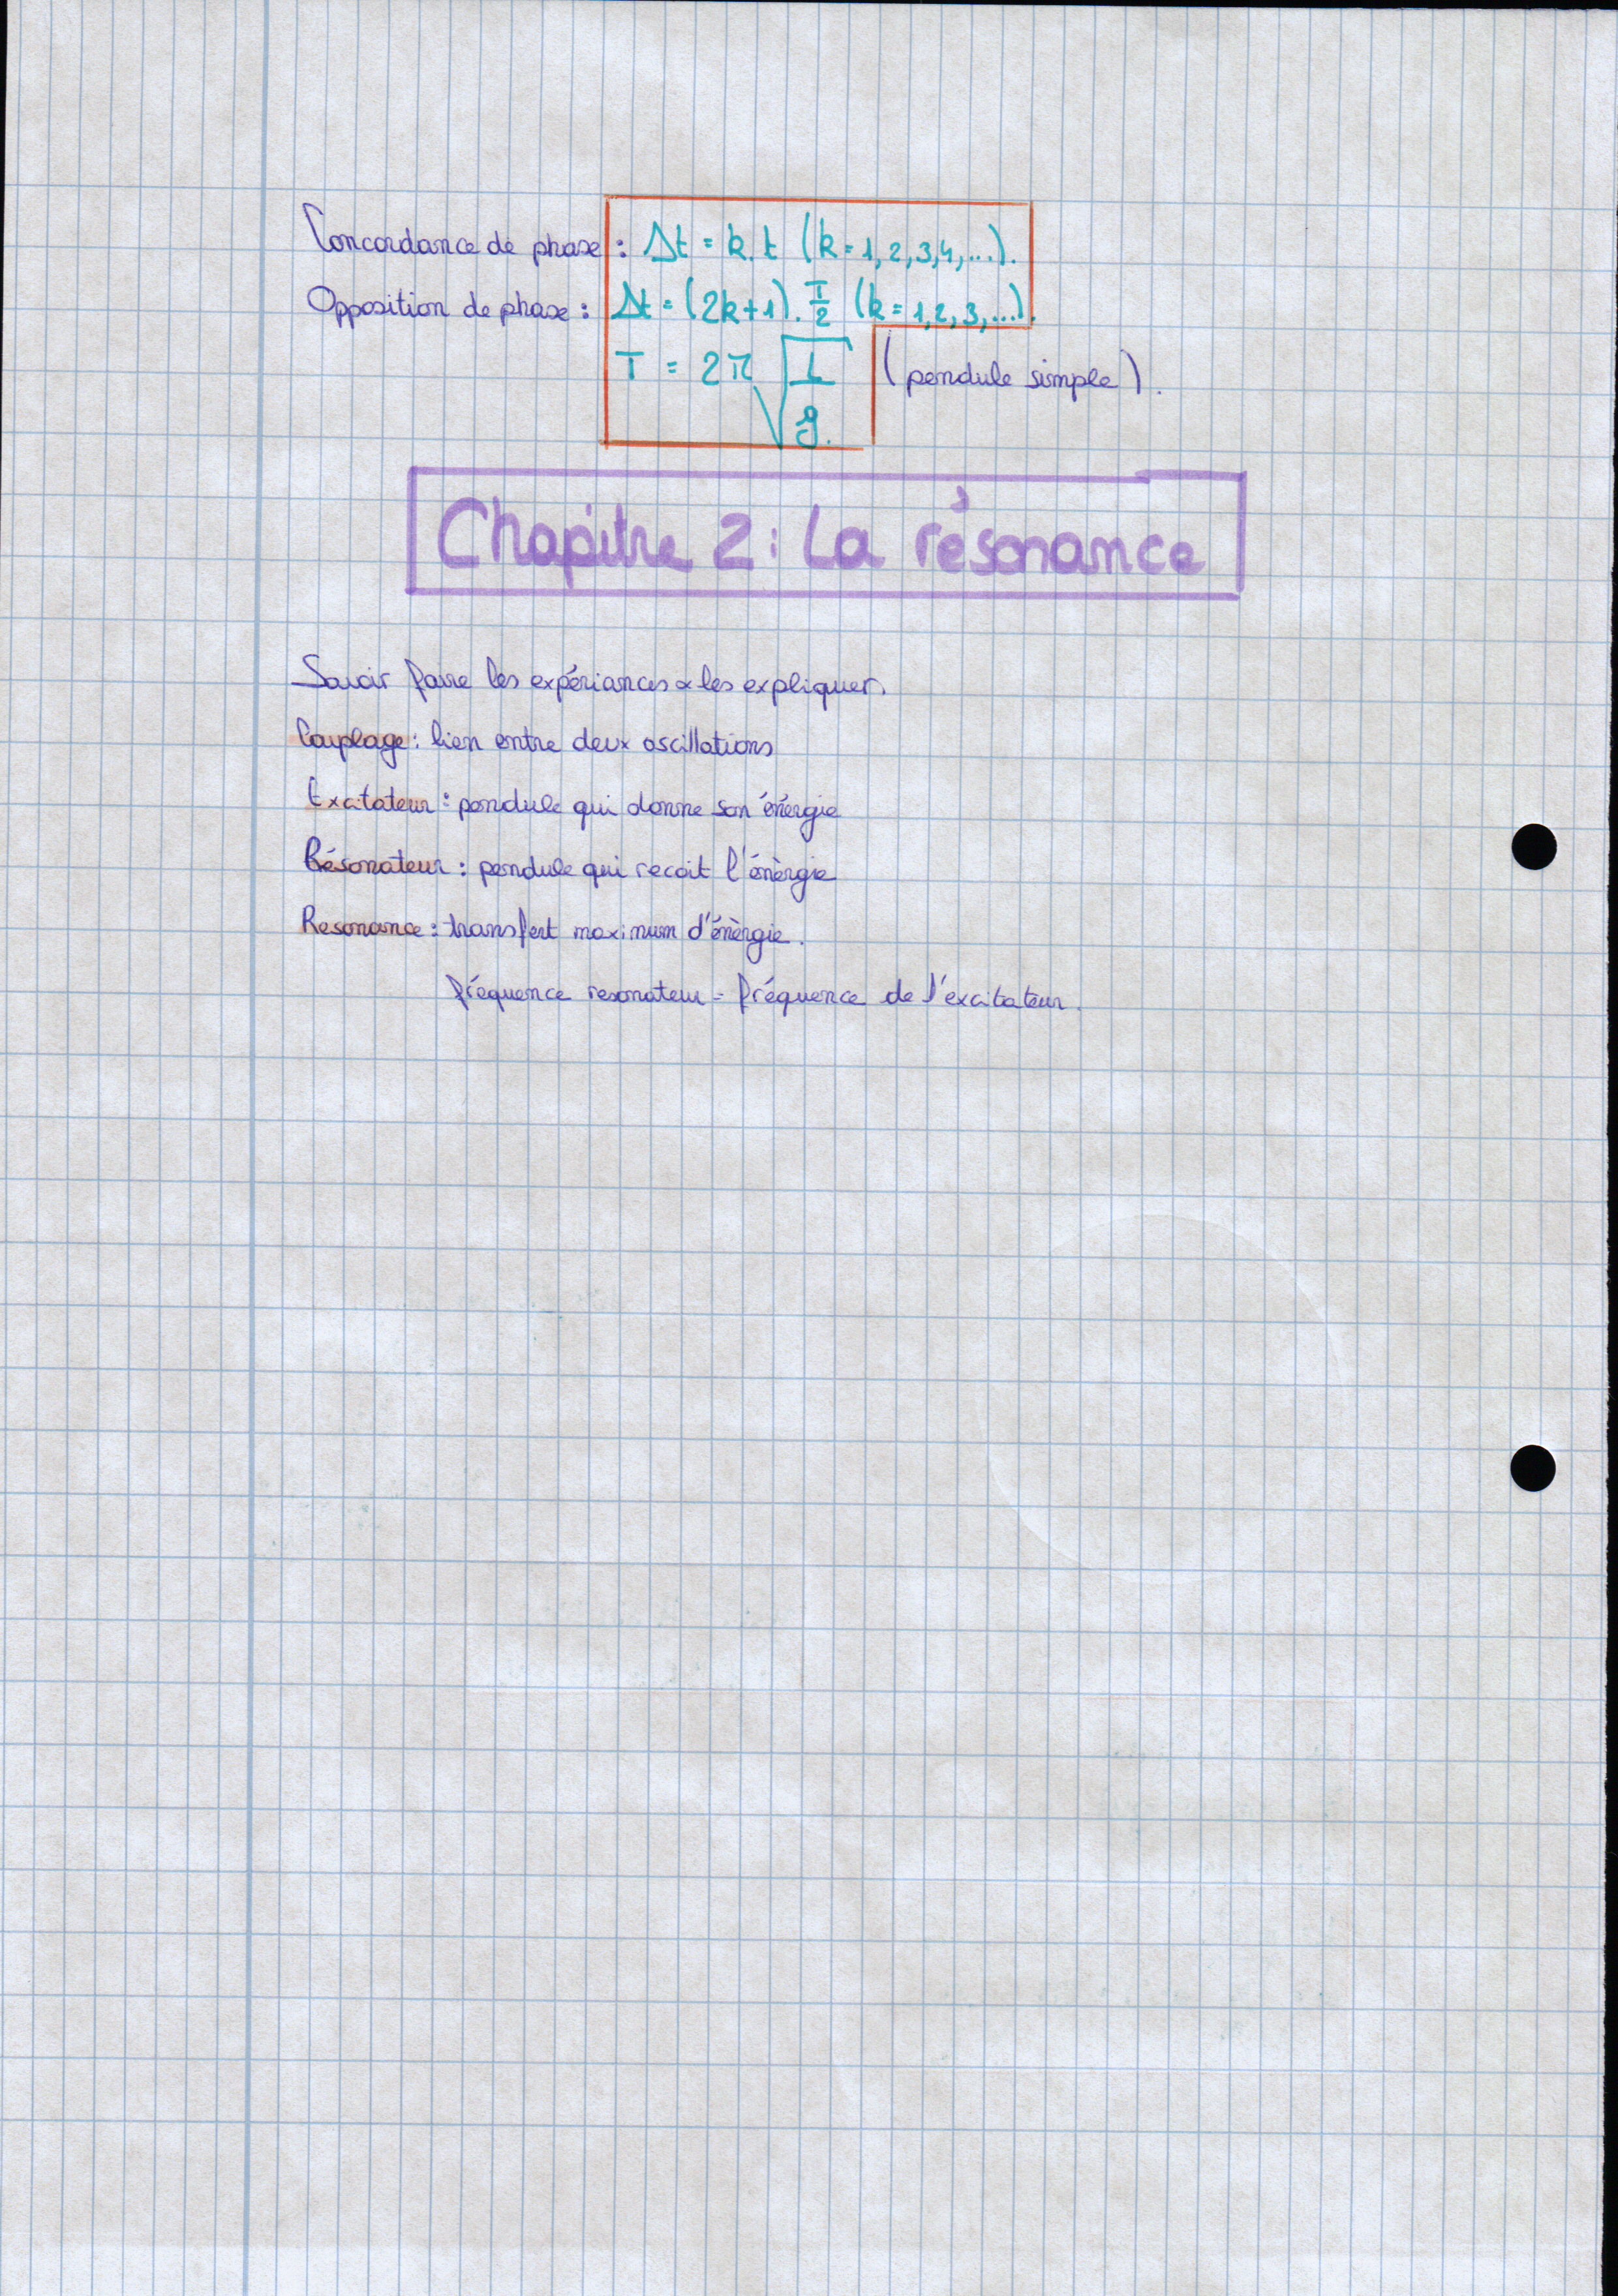 Concordance de phase : Δt = k.t (k=1,2,3,4,...).
Opposition de phase : Δt = (2k+1). T/2 (k=1,2,3,...).
T = 2π √(L/g.) (pendule simple).
Chapitre 2: La résonance
Savoir faire les expériances & les expliquer.
Couplage : lien entre deux oscillations
Excitateur : pendule qui donne son énérgie
Résonateur : pendule qui recoit l'énèrgie
Resonance : transfert maximum d'énèrgie.
fréquence resonateur = fréquence de l'excitateur.